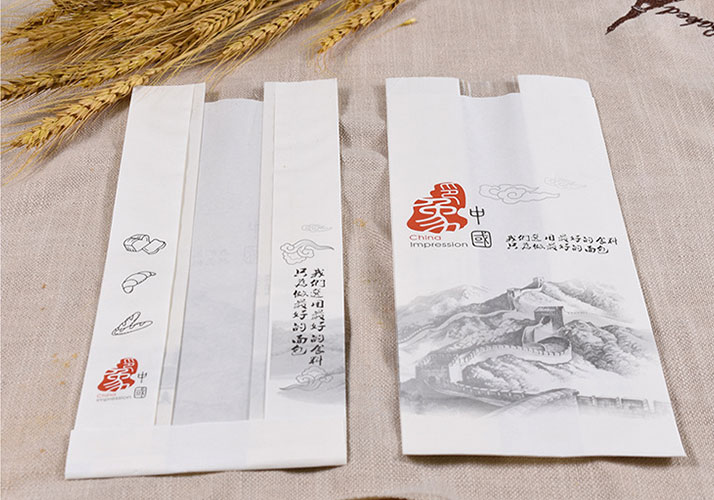 印象
中國
China
Impression
我们选用最好的食料
只为做最好的面包
我们选用最好的食料
只为做最好的面包
印象
中國
China
Impression
Baked